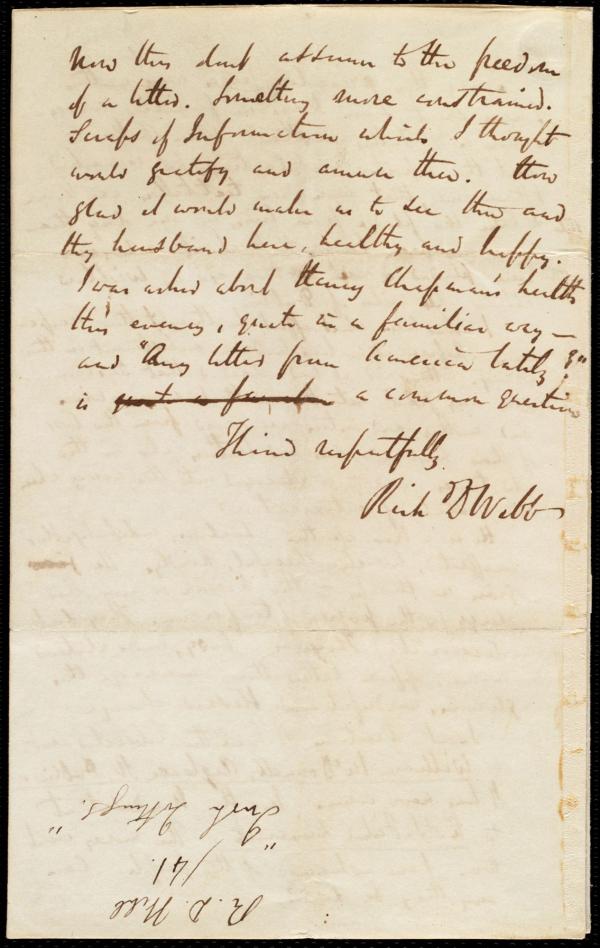 Now this dont assume to the freedom
of a letter. Something more constrained.
Scraps of Information which I thought
would gratify and amuse thee. How
glad it would make us to see thee and
thy husband here, healthy and happy.
I was asked about Henry Chapman's health
this evening, quite in a familiar way—
and "Any letter from America lately?"
is quite a familiar a common question
Thine respectfully
Rich D Webb
R. D. Webb
/41.
"Irish Jottings."